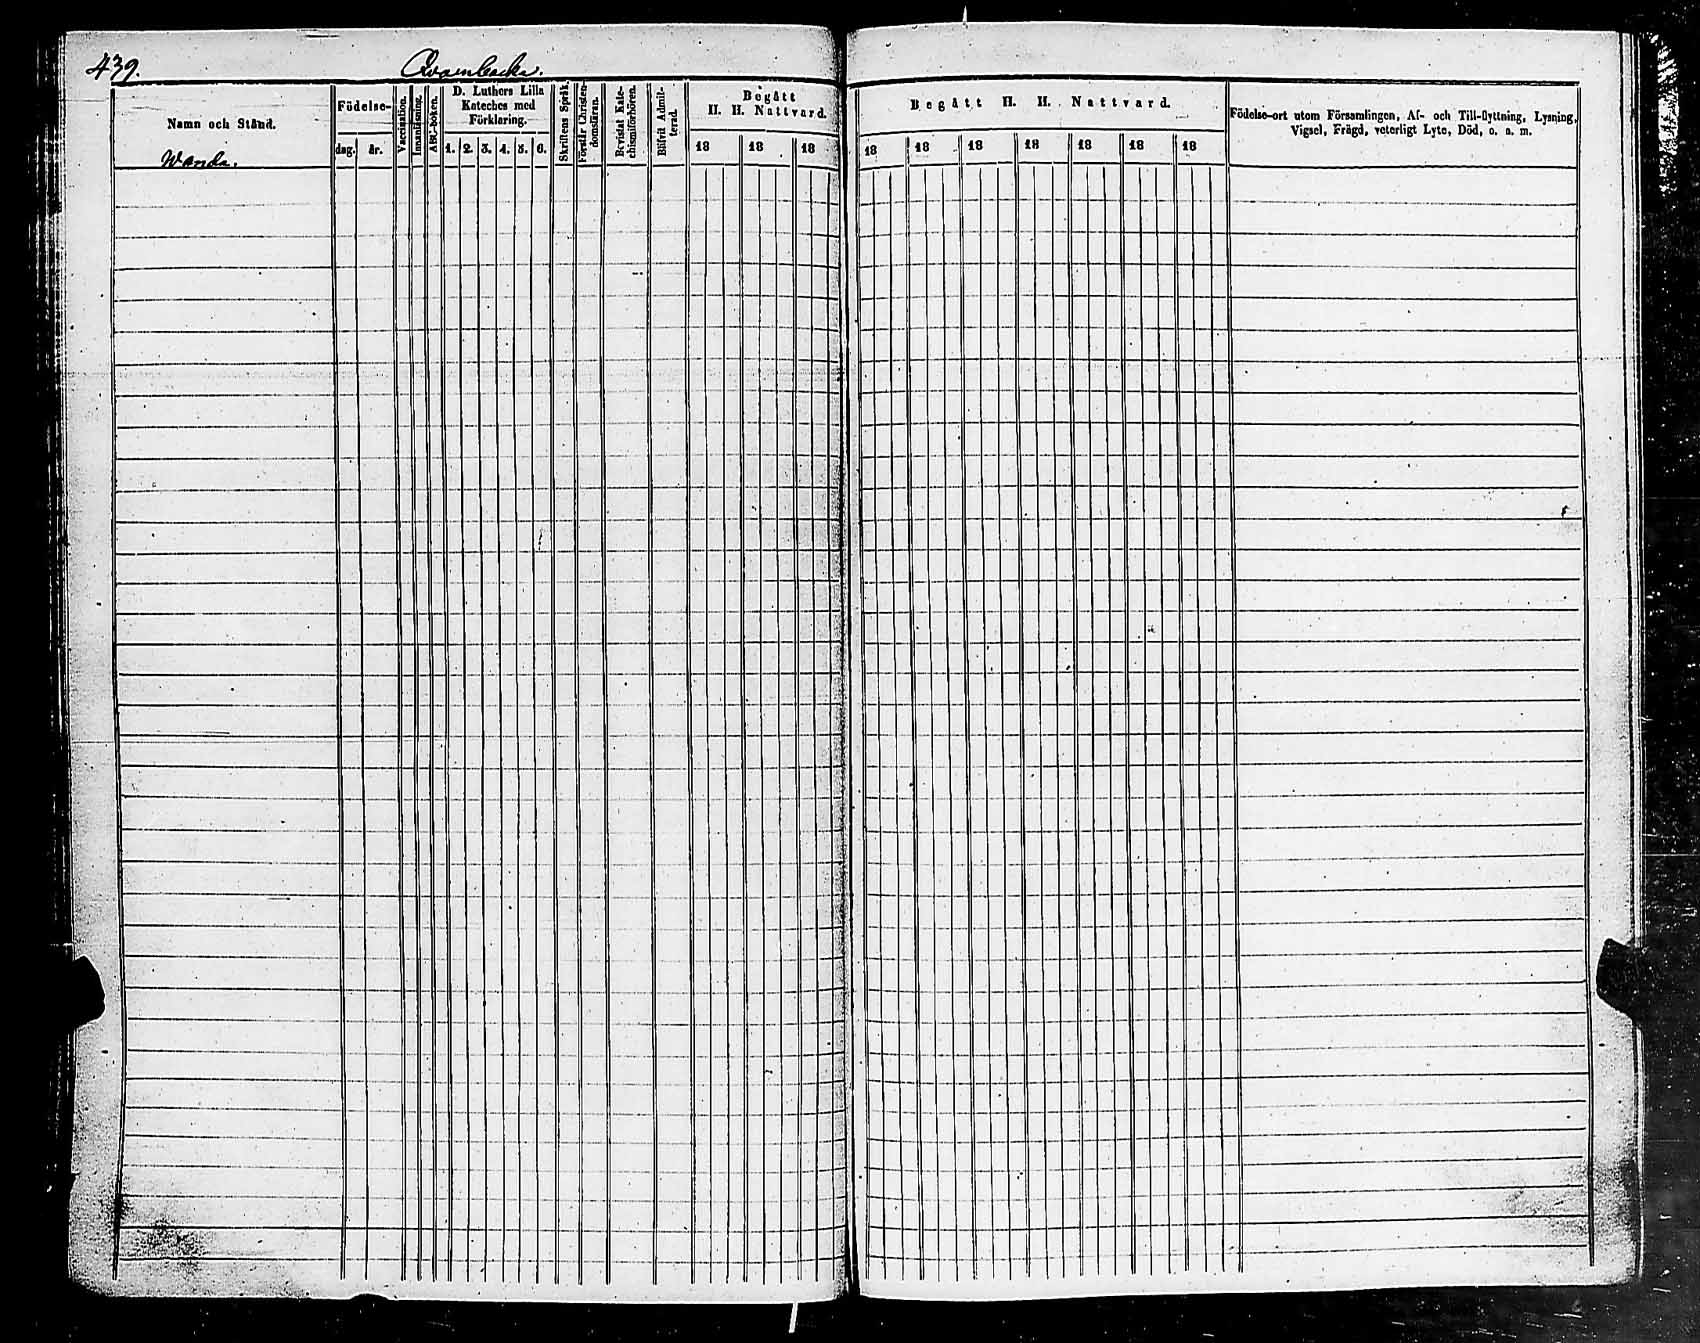 439. Qvarnbacka.
Namn och Stånd.
Wanda.
Födelse-
dag. år.
Vaccination.
Innanläsning.
ABC-boken.
D. Luthers Lilla
Kateches med
Förklaring.
1. 2. 3. 4. 5. 6.
Skriftens Språk.
Förstår Christen-
domsläran.
Bevistat Kate-
chismiförhören.
Blifvit Admit-
terad.
Begått
H. H. Nattvard.
18 18 18
Begått H. H. Nattvard.
18 18 18 18 18 18 18
Födelse-ort utom Församlingen, Af- och Till-flyttning, Lysning,
Vigsel, Frägd, veterligt Lyte, Död, o. s. m.